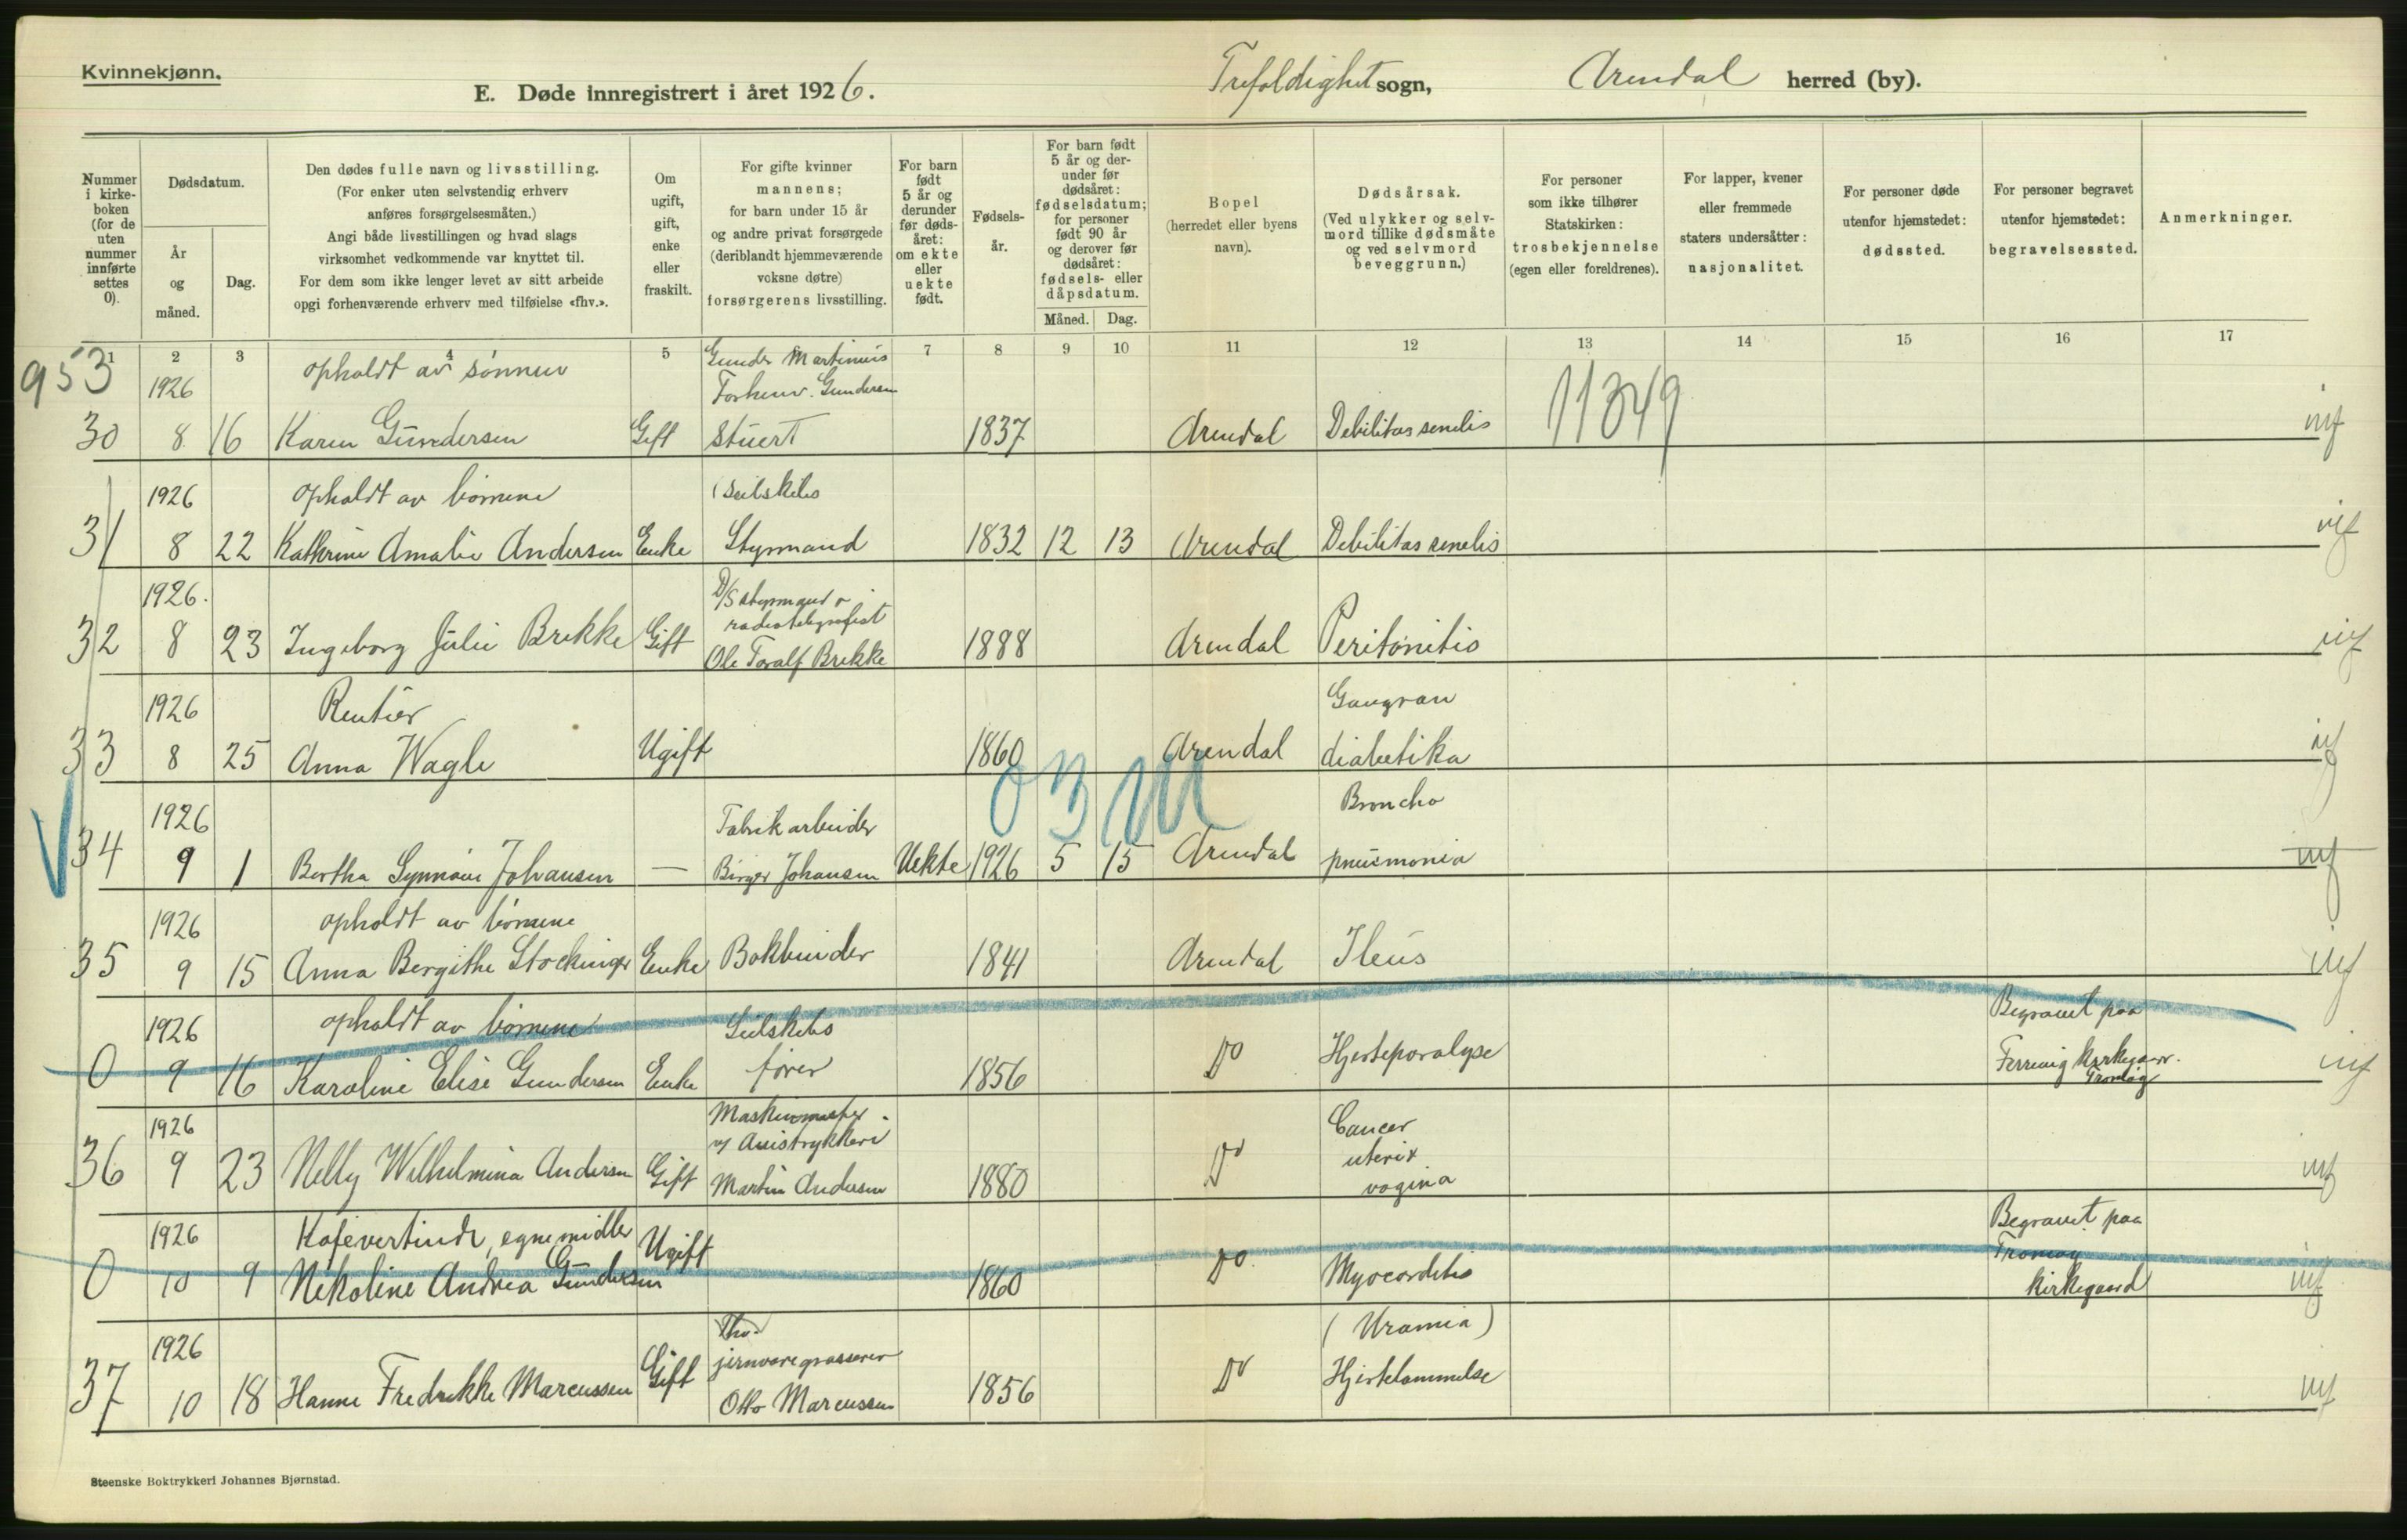 Kvinnekjønn.
E. Døde innregistrert i året 1926.
Trefoldighet sogn,
Arendal herred (by).
Nummer i kirke- boken (for de uten nummer innførte settes 0).
Dødsdatum.
År og måned.
Dag.
Den dødes fulle navn og livsstilling.
(For enker uten selvstendig erhverv
anføres forsørgelsesmåten.)
Angi både livsstillingen og hvad slags
virksomhet vedkommende var knyttet til.
For dem som ikke lenger levet av sitt arbeide
opgi forhenværende erhverv med tilføielse «fhv.».
Om ugift, gift, enke eller fraskilt.
For gifte kvinner
mannens;
for barn under 15 år
og andre privat forsørgede
(deriblandt hjemmeværende
voksne døtre)
forsørgerens livsstilling.
For barn født 5 år og derunder før døds- året: om ekte eller uekte født.
Fødsels- år.
For barn født 5 år og der- under før dødsåret: fødselsdatum; for personer født 90 år og derover før dødsåret: fødsels- eller dåpsdatum.
Måned. Dag.
Bopel
(herredet eller byens
navn).
Dødsårsak.
(Ved ulykker og selv-
mord tillike dødsmåte
og ved selvmord
beveggrunn.)
For personer
som ikke tilhører
Statskirken:
trosbekjennelse
(egen eller foreldrenes).
For lapper, kvener
eller fremmede
staters undersåtter:
nasjonalitet.
For personer døde
utenfor hjemstedet:
dødssted.
For personer begravet
utenfor hjemstedet:
begravelsessted.
Anmerkninger.
1 2 3 4 5 7 8 9 10 11 12 13 14 15 16 17
953
1926 opholdt av sønnen Gunder Martinius
Forhenv. Gundersen
30 8 16 Karen Gundersen Gift Stuert 1837 Arendal Debilitas senilis 11349
1926 opholdt av børnene Seilskibs
31 8 22 Kathrine Amalie Andersen Enke Styrmand 1832 12 13 Arendal Debilitas senelis
1926. D/S styrmand o
radiotelegrafist
32 8 23 Ingeborg Julie Brekke Gift Ole Toralf Brekke 1888 Arendal Peritonitis
1926 Rentier Gangran
33 8 25 Anna Wagle Ugift 1860 Arendal diabetika
03
1926 Fabrikarbeider Broncho
34 9 1 Bertha Synnøve Johansen — Birger Johansen Uekte 1926 5 15 Arendal pneumonia
1926 opholdt av børnene
35 9 15 Anna Bergithe Stockinger Enke Bokbinder 1841 Arendal Ileus
1926 opholdt av børnene Seilskibs Begravet paa
0 9 16 Karoline Elise Gundersen Enke fører 1856 Do Hjerteparalyse
1926 Maskinmester
v/ Avistrykkeri Cancer
uteri
36 9 23 Nelly Wilhelmina Andersen Gift Martin Andersen 1880 Do vagina
1926 Kafevertinde, egne midler Begravet paa
Tromøy
0 10 9 Nikoline Andrea Gundersen Ugift 1860 Do Myocorditis kirkegaard
1926 Fhv. (Uramia)
jernvaregrosserer
37 10 18 Hanne Fredrikke Marcussen Gift Otto Marcussen 1856 Do Hjertelammelse
Steenske Boktrykkeri Johannes Bjørnstad.